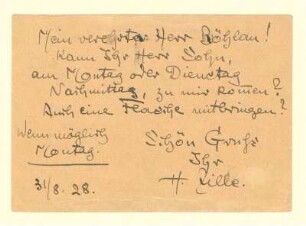 Mein verehrter Herr Bötzlau!
Kann Ihr Herr Sohn,
am Montag oder Dienstag
Nachmittag, zu mir komen?
Auch eine Flasche mitbringen?
Wenn möglich
Montag.
Schön Gruß
Ihr
H. Zille.
31/8. 28.